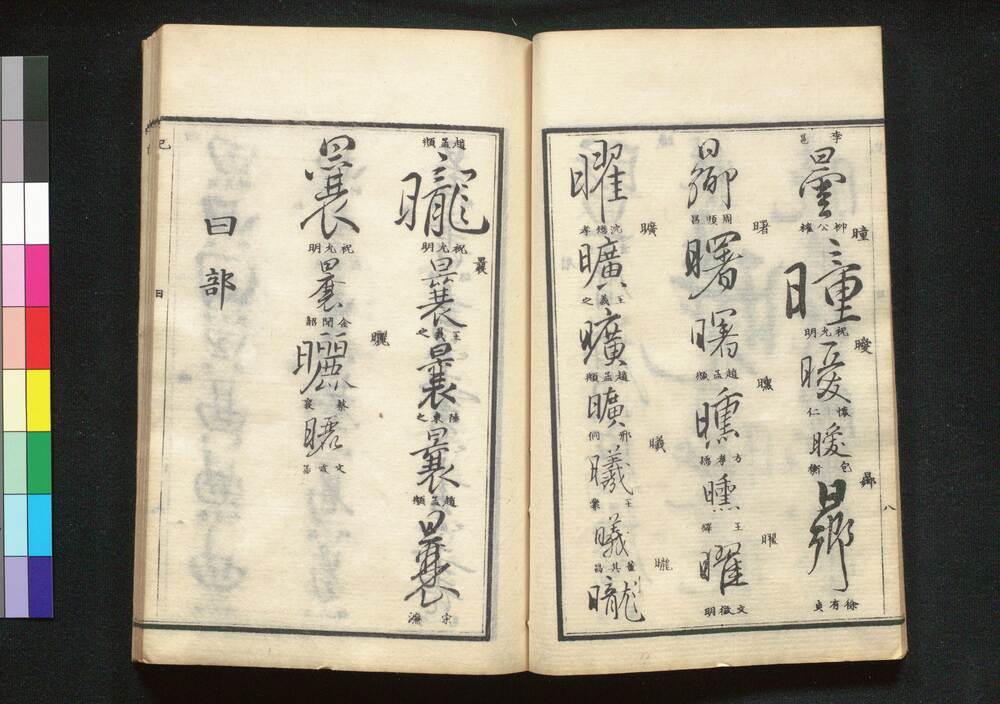 李邕
曇
柳公權
瞳
曈
祝允明
曖
曖
懷仁
曖
包衡
曏
徐有貞
曏
周順昌
曙
曙
曙
趙孟頫
曛
曛
方孝孺
曛
王鐸
曜
曜
文徵明
曜
沈懋孝
曠
曠
王羲之
曠
趙孟頫
曠
邢侗
曦
曦
王
曦
董其昌
曨
曨
趙孟頫
曨
祝允明
曩
曩
王羲之
曩
陸柬之
曩
趙孟頫
曩
宋濂
曩
祝允明
曩
曬
曬
蔡襄
曬
文
曰部
八